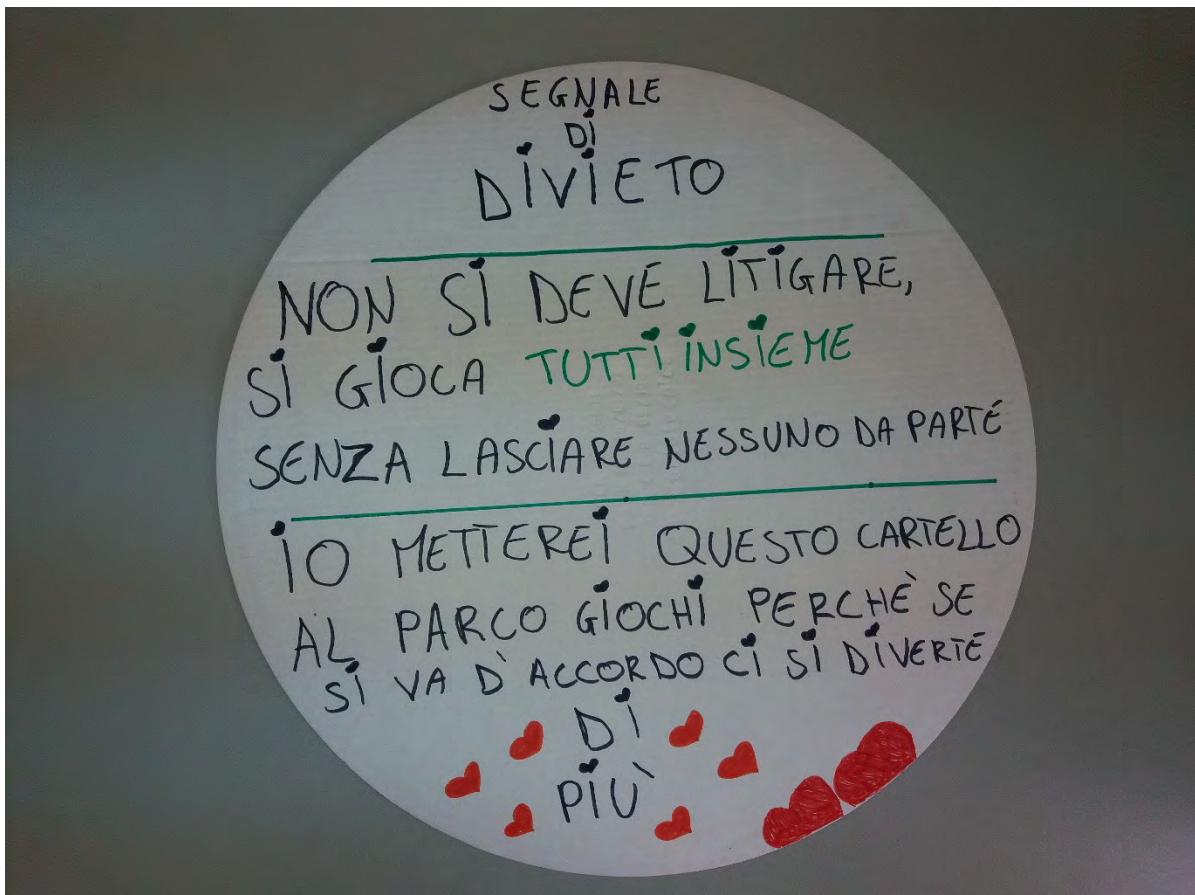 SEGNALE
DI
DIVIETO
NON SI DEVE LITIGARE,
SI GIOCA TUTTI INSIEME
SENZA LASCIARE NESSUNO DA PARTE
IO METTEREI QUESTO CARTELLO
AL PARCO GIOCHI PERCHÈ SE
SI VA D'ACCORDO CI SI DIVERTE
DI
PIÙ